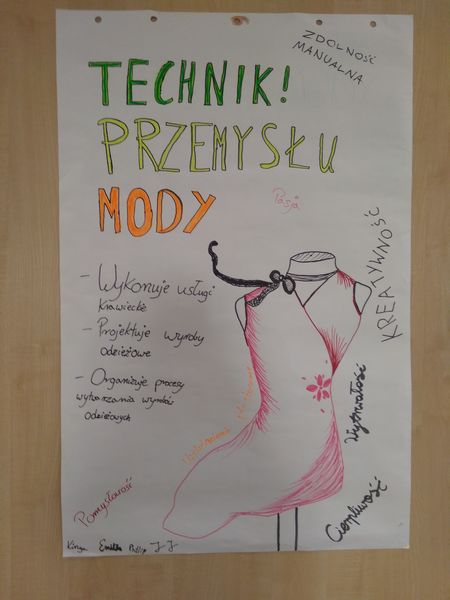 ZDOLNOŚĆ
MANUALNA
TECHNIK!
PRZEMYSŁU
MODY
Pasja
KREATYWNOŚĆ
- Wykonuje usługi
krawieckie
- Projektuje wyroby
odzieżowe
- Organizuje procesy
wytwarzania wyrobów
odzieżowych
Wytrwałość
Cierpliwość
Pomysłowość
Kinga Emilka J J